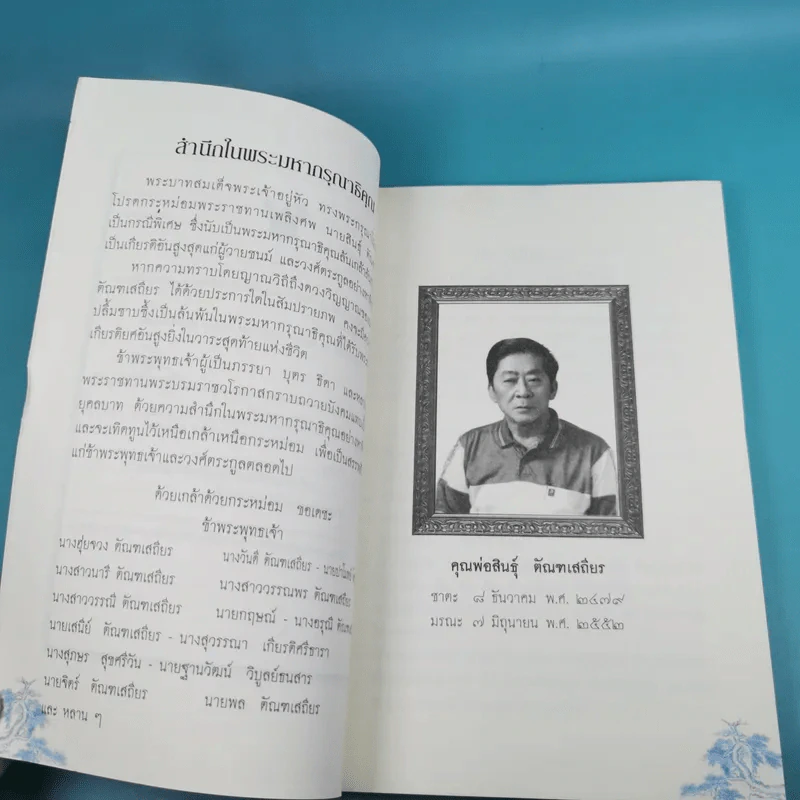 สำนึกในพระมหากรุณาธิคุณ
พระบาทสมเด็จพระเจ้าอยู่หัว ทรงพระกรุณา
โปรดกระหม่อมพระราชทานเพลิงศพ นายสินธุ์
เป็นกรณีพิเศษ ซึ่งนับเป็นพระมหากรุณาธิคุณล้นเกล้า
เป็นเกียรติอันสูงสุดแก่ผู้วายชนม์ และวงศ์ตระกูลอย่าง
หากความทราบโดยญาณวิถีถึงดวงวิญญาณของ
ตัณฑเสถียร ได้ด้วยประการใดในสัมปรายภพ คงจะ
ปลื้มซาบซึ้งเป็นล้นพ้นในพระมหากรุณาธิคุณที่ได้รับ
เกียรติยศอันสูงยิ่งในวาระสุดท้ายแห่งชีวิต
ข้าพระพุทธเจ้าผู้เป็นภรรยา บุตร ธิดา และ
พระราชทานพระบรมราชวโรกาสกราบถวายบังคมแทบ
ยุคลบาท ด้วยความสำนึกในพระมหากรุณาธิคุณอย่าง
และจะเทิดทูนไว้เหนือเกล้าเหนือกระหม่อม เพื่อเป็น
แก่ข้าพระพุทธเจ้าและวงศ์ตระกูลตลอดไป
ด้วยเกล้าด้วยกระหม่อม ขอเดชะ
ข้าพระพุทธเจ้า
นางฮุ่ยจวง ตัณฑเสถียร นางวันดี ตัณฑเสถียร -
นางสาวนารี ตัณฑเสถียร นางสาววรรณพร ตัณฑเสถียร
นางสาววรรณี ตัณฑเสถียร นายกฤษณ์ - นางอรุณี
นายเสนีย์ ตัณฑเสถียร - นางสุวรรณา เกียรติศรีธารา
นางสุภษร สุขศรีวัน - นายฐานวัฒน์ วิบูลย์ธนสาร
นายจิตร์ ตัณฑเสถียร นายพล ตัณฑเสถียร
และ หลาน ๆ
คุณพ่อสินธุ์ ตัณฑเสถียร
ชาตะ ๘ ธันวาคม พ.ศ. ๒๔๗๙
มรณะ ๗ มิถุนายน พ.ศ. ๒๕๕๒